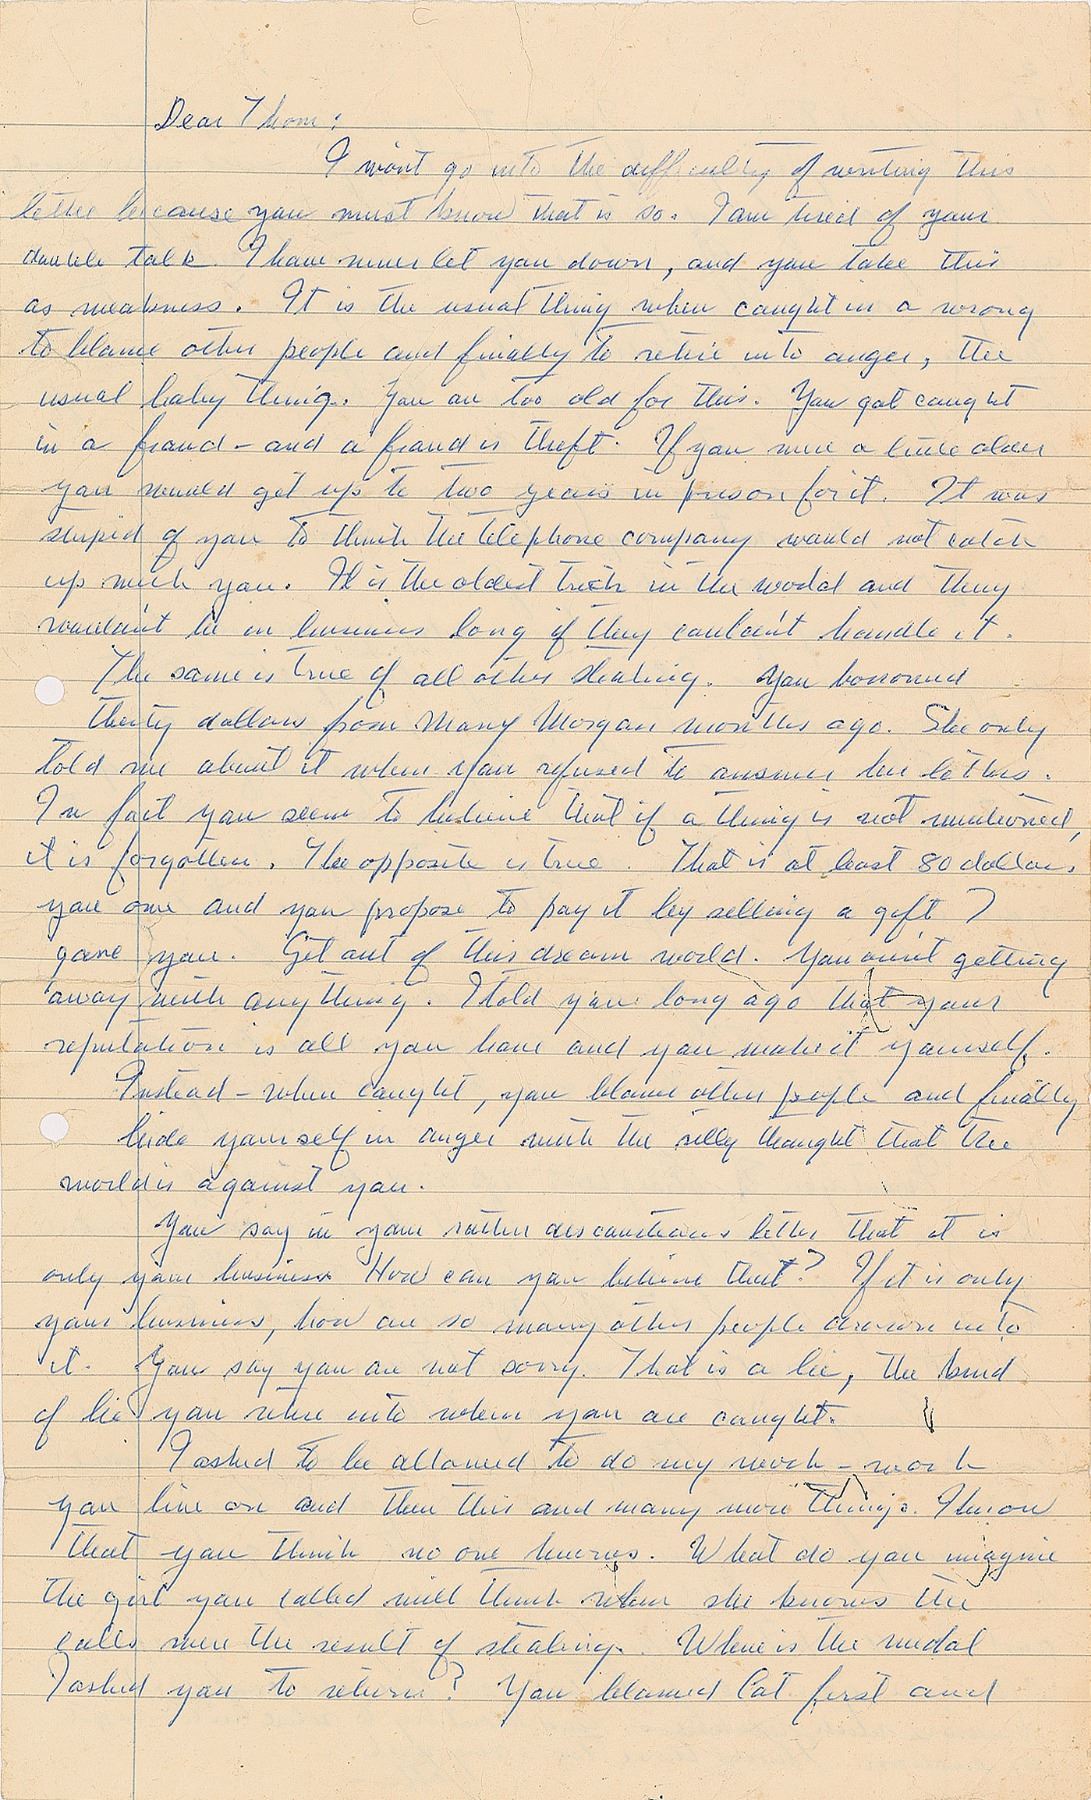 Dear Thom:
I wont go into the difficulty of writing this
letter because you must know that is so. I am tired of your
double talk. I have never let you down, and you take this
as weakness. It is the usual thing when caught in a wrong
to blame other people and finally to retire into anger, the
usual baby thing. You are too old for this. You got caught
in a fraud - and a fraud is theft. If you were a little older
you would get up to two years in prison for it. It was
stupid of you to think the telephone company would not catch
up with you. It is the oldest trick in the world and they
wouldn't be in business long if they couldn't handle it.
The same is true of all other stealing. You borrowed
thirty dollars from Mary Morgan months ago. She only
told me about it when you refused to answer her letters.
In fact you seem to believe that if a thing is not mentioned,
it is forgotten. The opposite is true. That is at least 80 dollars
you owe and you propose to pay it by selling a gift I
gave you. Get out of this dream world. You aint getting
away with anything. I told you long ago that your
reputation is all you have and you make it yourself.
Instead - when caught, you blame other people and finally
hide yourself in anger with the silly thought that the
world is against you.
You say in your rather discourteous letter that it is
only your business How can you believe that? If it is only
your business, how are so many other people drawn into
it. You say you are not sorry. That is a lie, the kind
of lie you retire into when you are caught.
I asked to be allowed to do my work - work
you live on and then this and many more things. I know
that you think no one knows. What do you imagine
the girl you called will think when she knows the
calls were the result of stealing. Where is the medal
I asked you to return? You blamed Cat first and